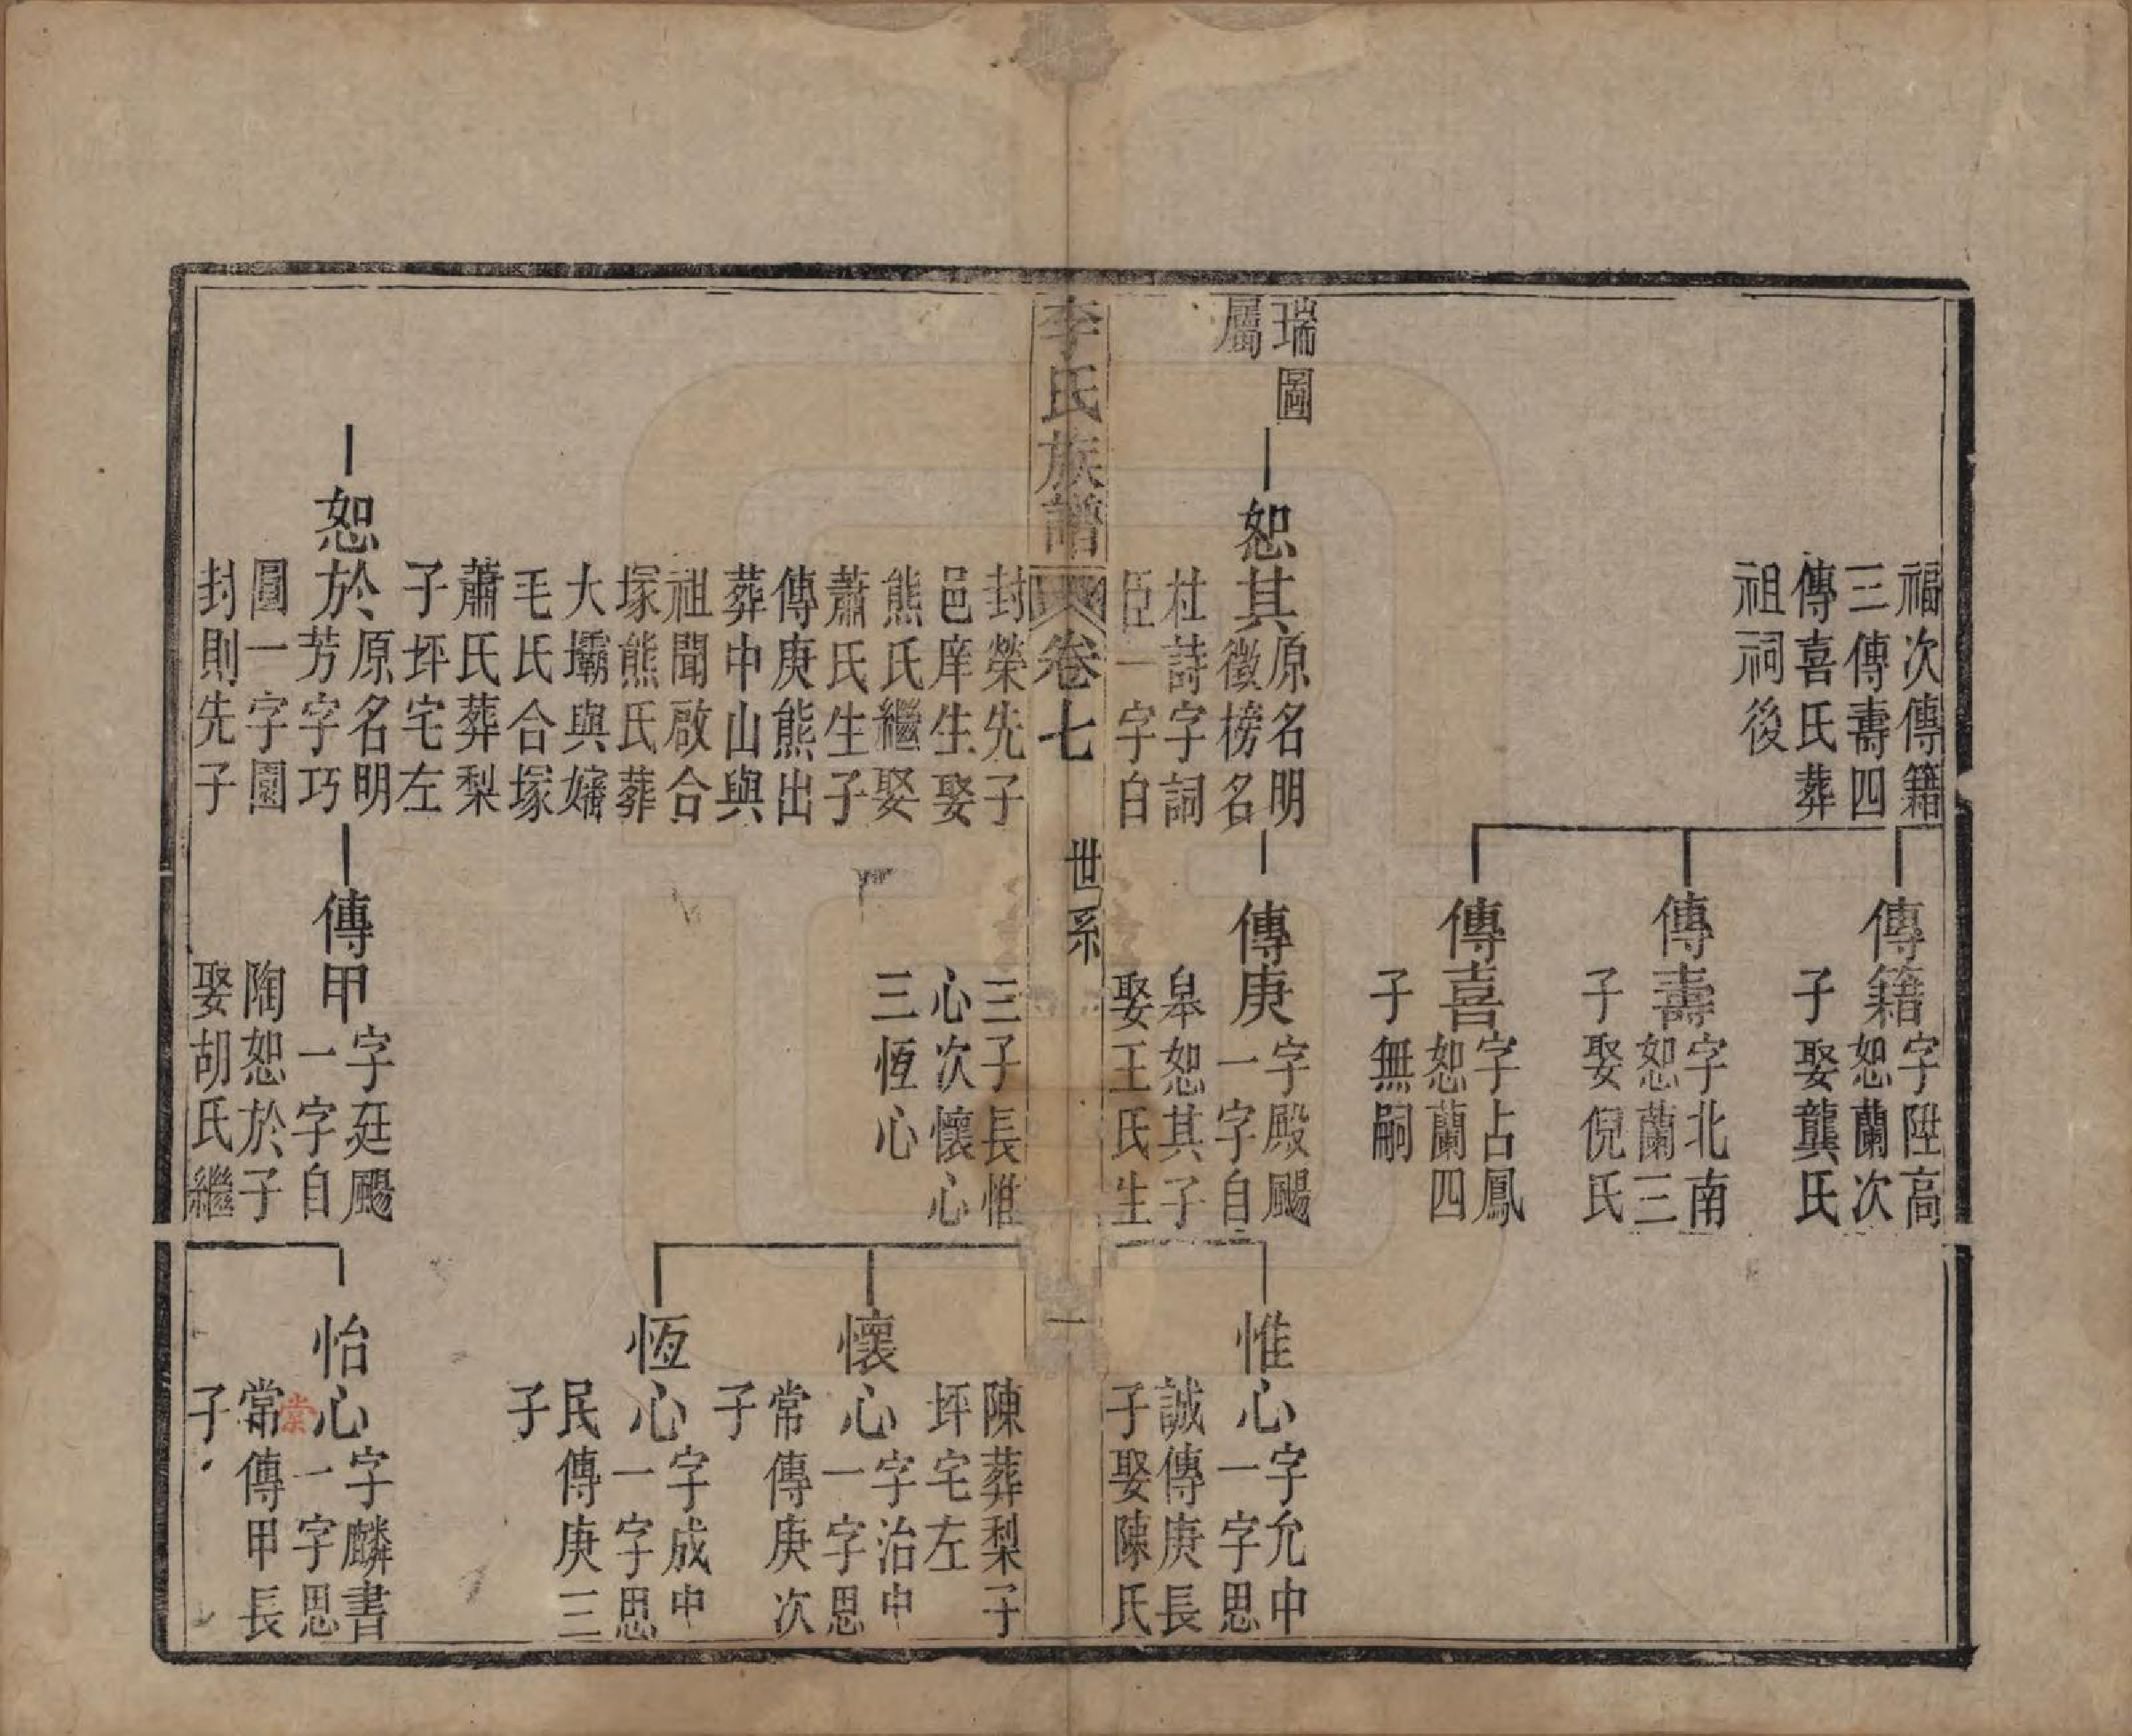 福次傳籍
三傳壽四
傳喜氏葬
祖祠後
傳籍
字陞高
恕蘭次
子娶龔氏
傳壽
字北南
恕蘭三
子娶倪氏
傳喜
字占鳳
恕蘭四
子無嗣
瑞圖
屬
恕其
原名明
徵榜名
杜詩字詞
臣一字白
傳庚
字殿颺
一字自
皋恕其子
娶王氏生
惟心
字允中
一字思
誠傳庚長
子娶陳氏
李氏族譜
卷七
世系
一
封榮先子
邑庠生娶
熊氏繼娶
蕭氏生子
傳庚熊出
葬中山與
祖聞啟合
塚熊氏葬
大壩與嬸
毛氏合塚
蕭氏葬梨
子坪宅左
三子長惟
心次懷心
三恆心
陳葬梨子
坪宅左
懷心
字治中
一字思
常傳庚次
子
恆心
字成中
一字思
民傳庚三
子
恕於
原名明
芳字巧
圓一字園
封則先子
傳甲
字廷颺
一字自
陶恕於子
娶胡氏繼
怡心
字麟書
一字思
棠
常傳甲長
子